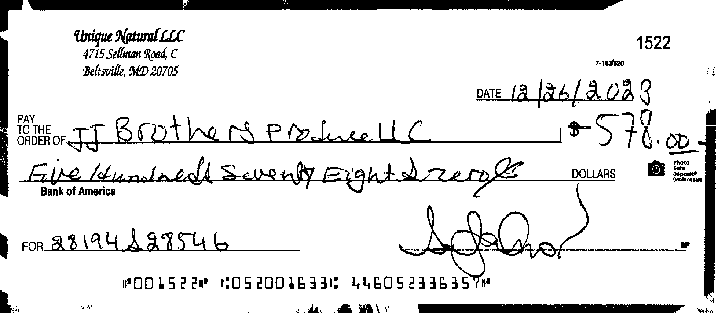 Unique Natural LLC
4715 Sellman Road, C
Beltsville, MD 20705
1522
DATE 12/26/2023
PAY
TO THE
ORDER OF JJ Brothers Produce LLC $ 578.00
Five Hundred Seventy Eight & zero/ DOLLARS
Photo
Safe
Deposit
Bank of America
FOR 28194 & 28546
⑈001522⑈ ⑆052001633⑆ 446052336357⑈